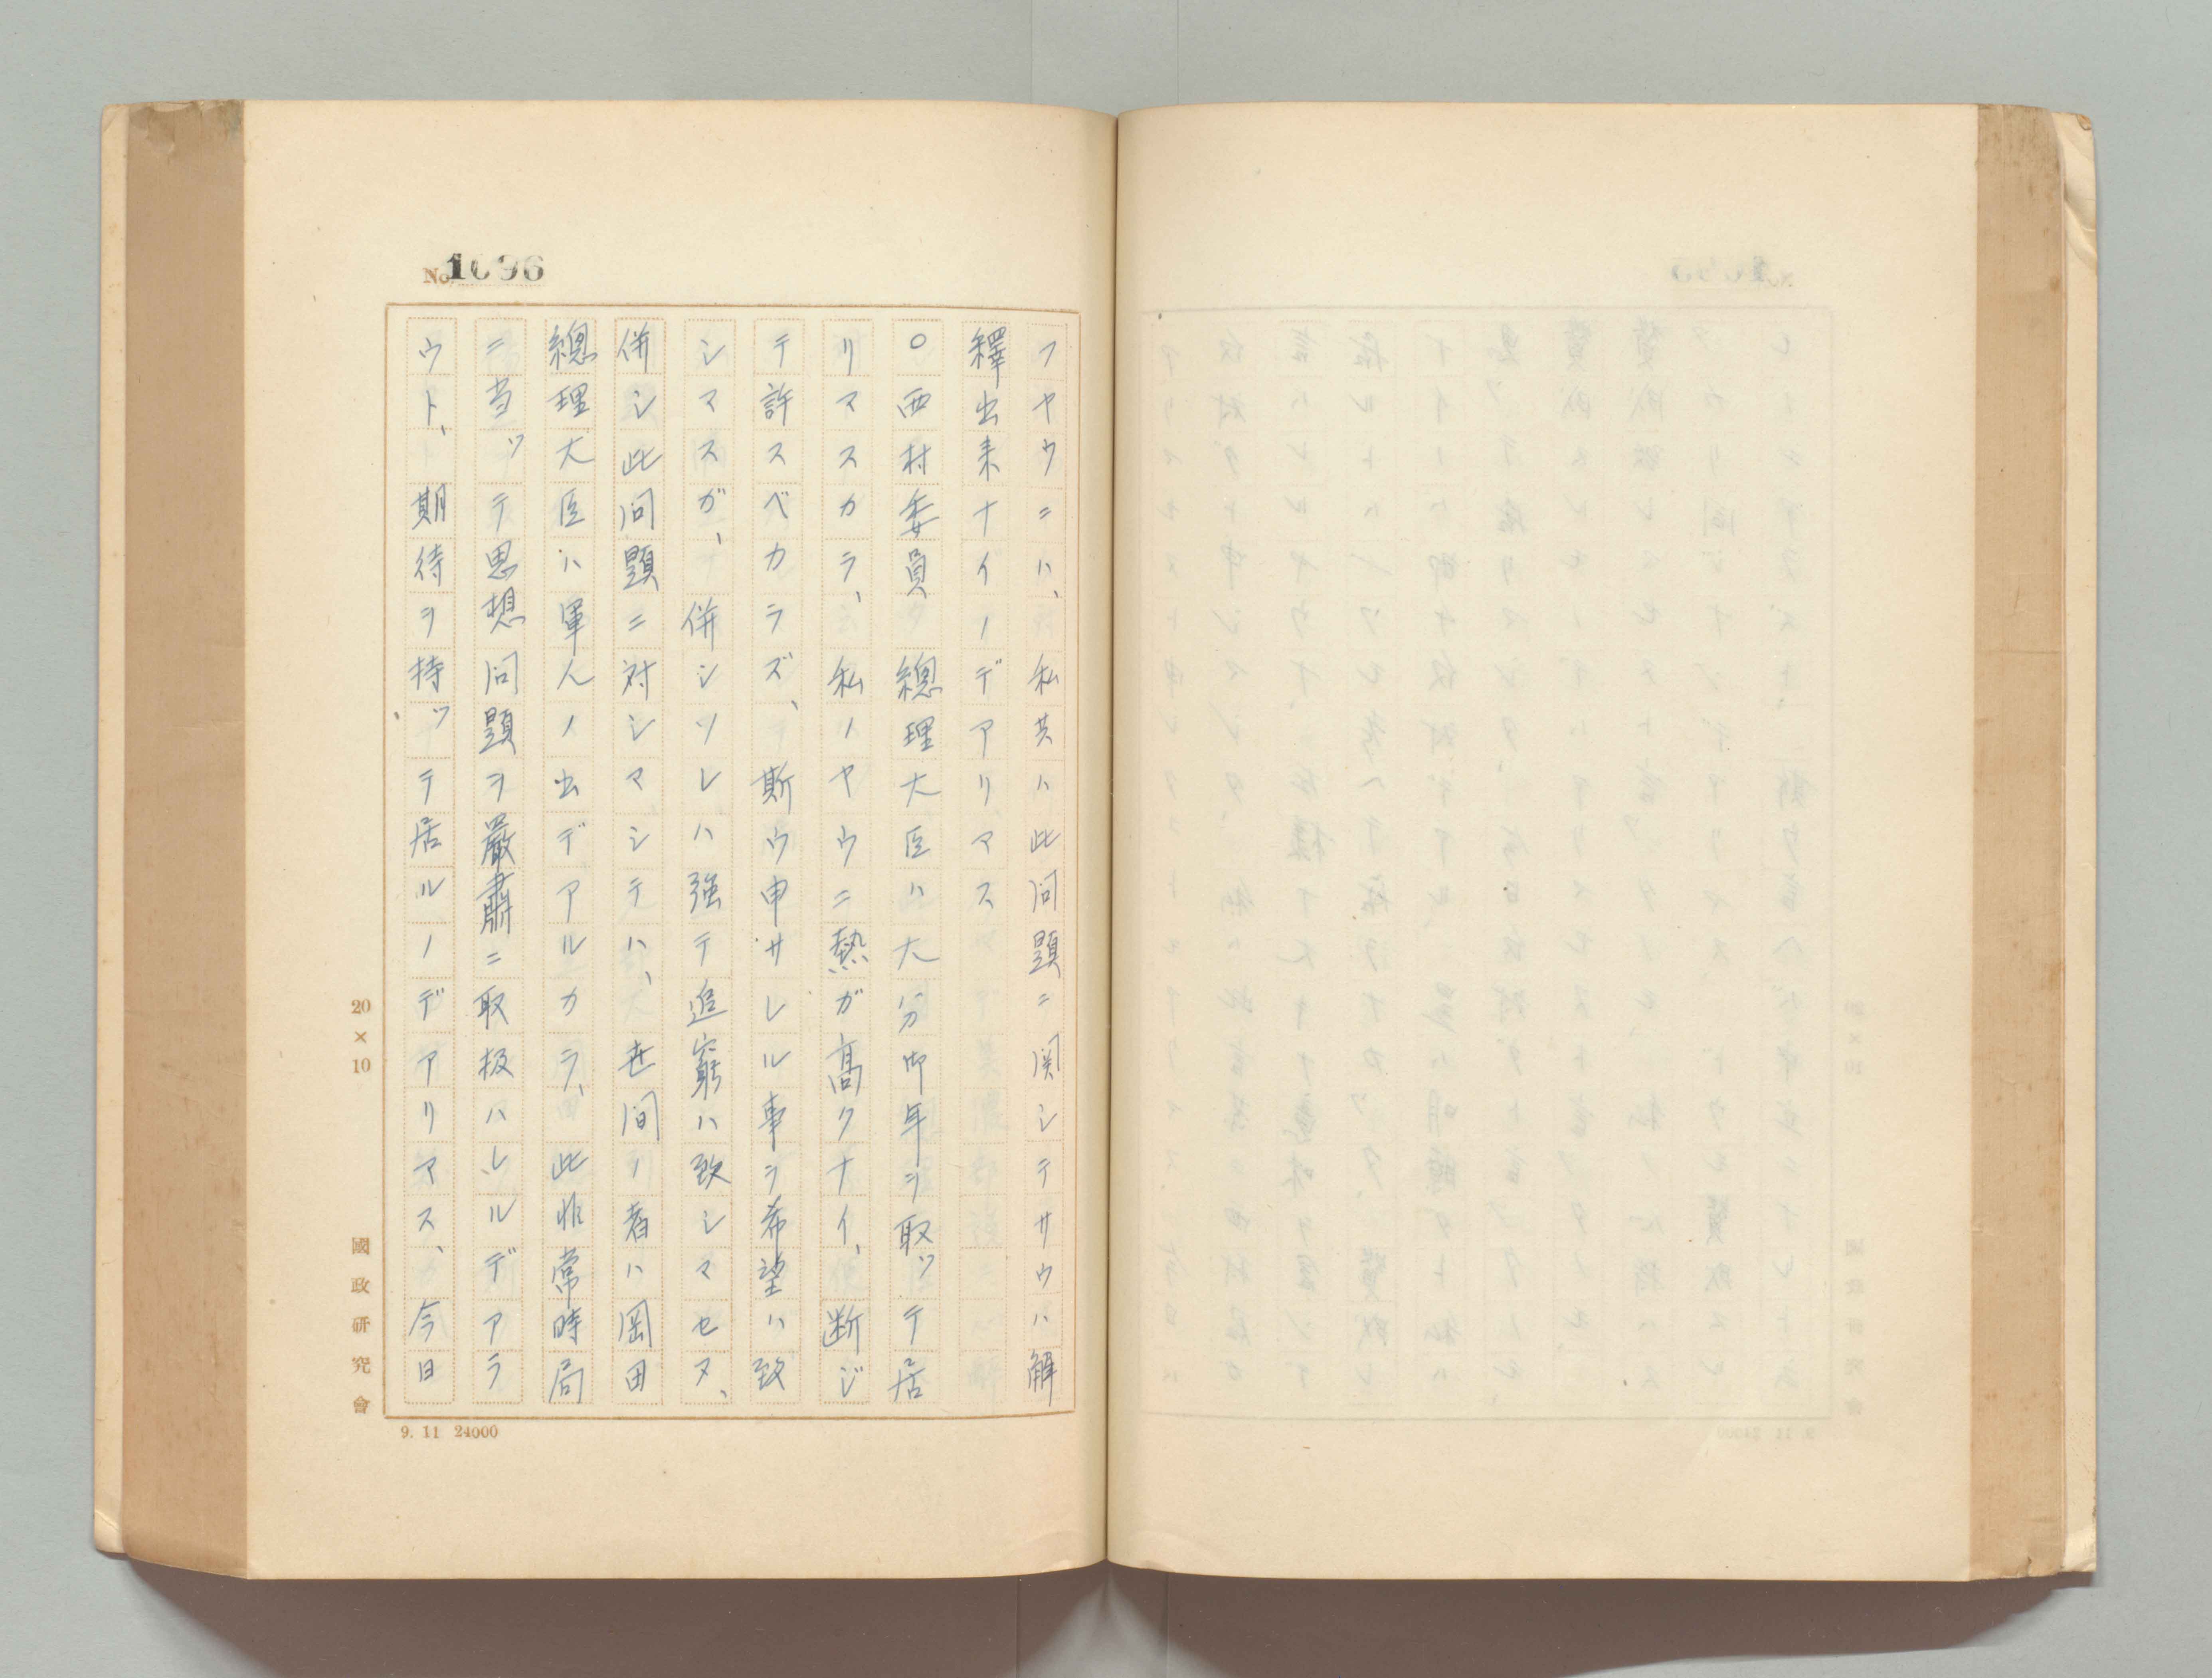 No. 1096
フヤウニハ、私共ハ此問題ニ関シテサウハ解
釋出来ナイノデアリマス
○西村委員 總理大臣ハ大分御年ヲ取ッテ居
リマスカラ、私ノヤウニ熱ガ高クナイ、断ジ
テ許スベカラズ、斯ウ申サレル事ヲ希望ハ致
シマスガ、併シソレハ強テ追窮ハ致シマセヌ、
併シ此問題ニ対シマシテハ、世間ノ者ハ岡田
總理大臣ハ軍人ノ出デアルカラ、此非常時局
ニ当ッテ思想問題ヲ嚴肅ニ取扱ハレルデアラ
ウト、期待ヲ持ッテ居ルノデアリマス、今日
20×10
國政研究會
9. 11 24000